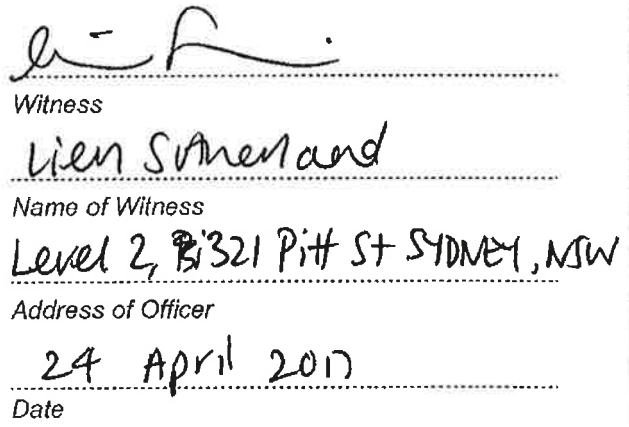 Witness
Lien Sutherland
Name of Witness
Level 2, 321 Pitt St SYDNEY, NSW
Address of Officer
24 April 2017
Date